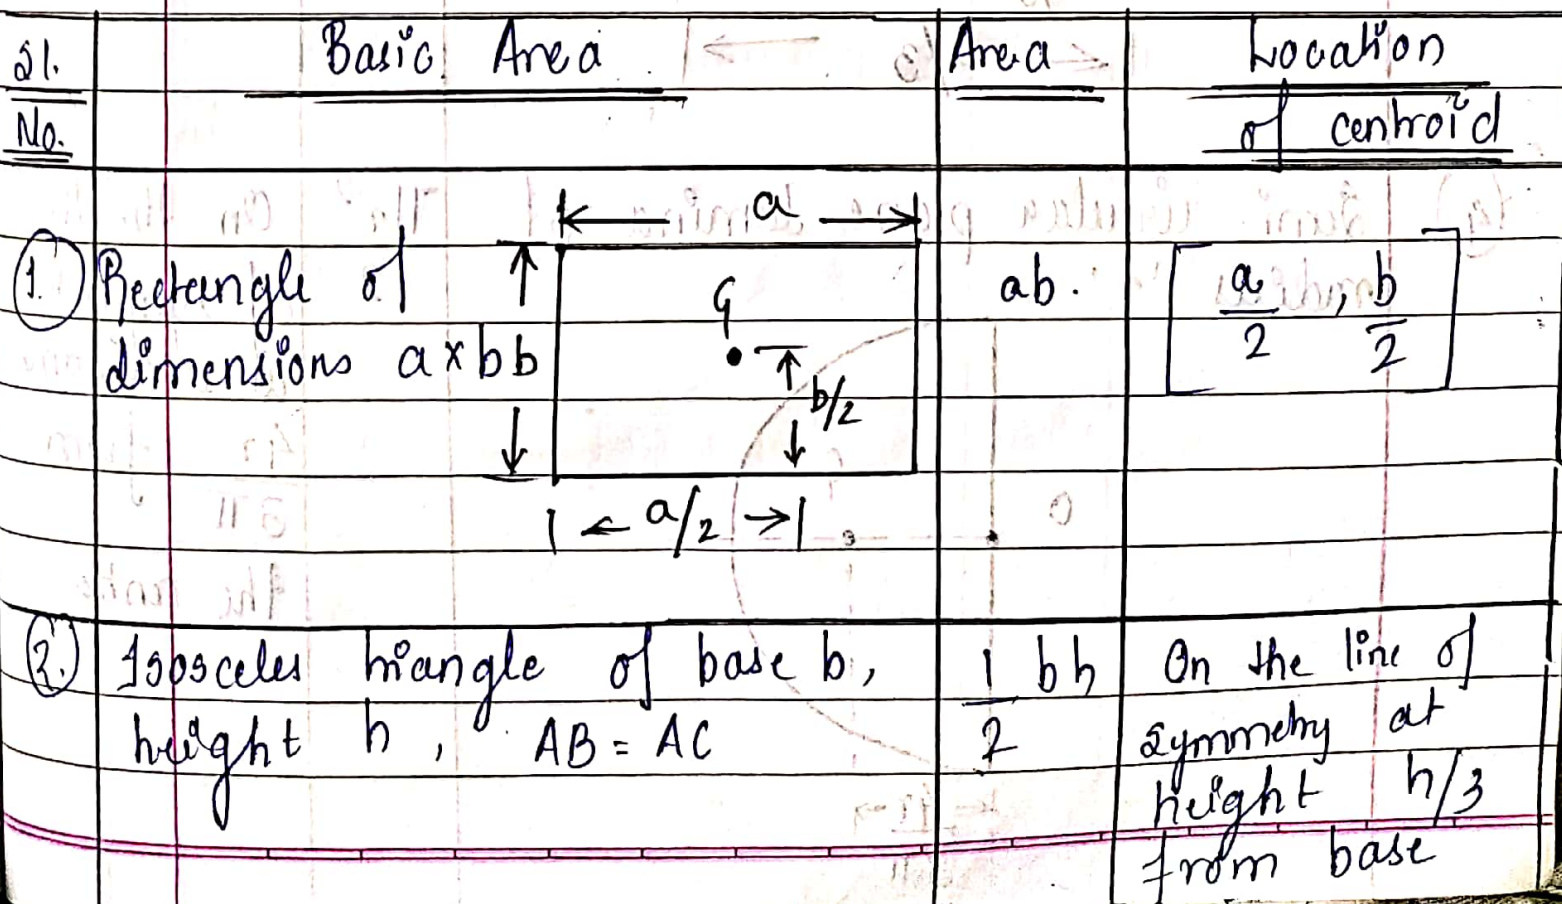 Sl. No.
Basic Area
Area
Location of centroid
1.
Rectangle of
dimensions a×b
b
a
G
b/2
a/2
ab.
[a/2, b/2]
2.
Isosceles triangle of base b,
height h, AB = AC
1/2 bh
On the line of
symmetry at
height h/3
from base